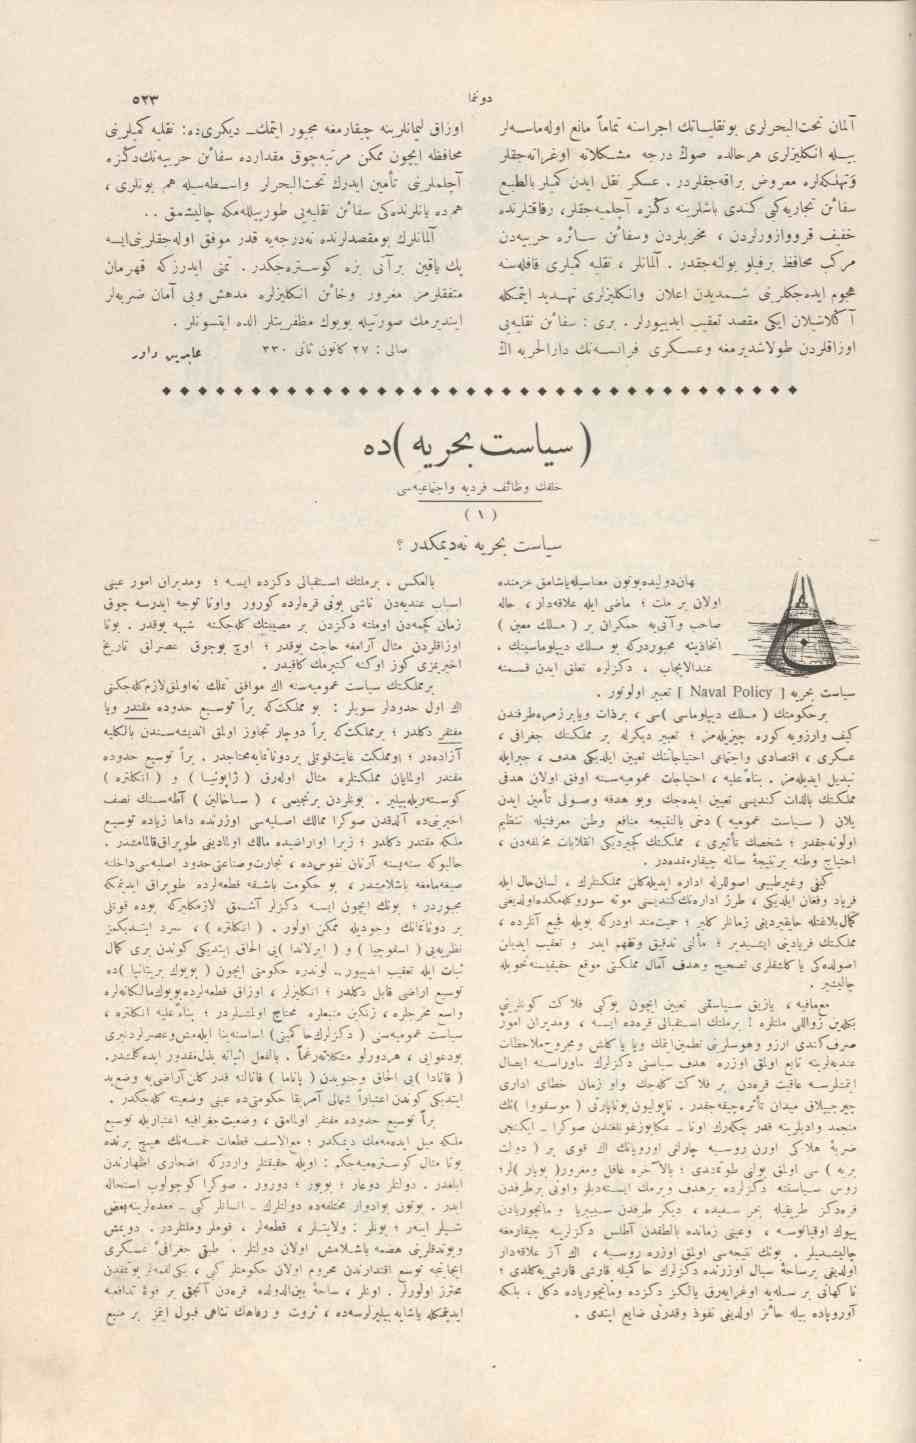 دوننما
٥٢٣
آلمان تحت‌البحرلری بونقلیاتك اجراسنه تماماً مانع اوله‌ماسه‌لر
بیله انكلیزلری هر حالده صوك درجه مشكلاته اوغراته‌جقلر
وتهلكه‌لره معروض براقه‌جقلردر . عسكر نقل ایدن كمیلر بالطبع
سفائن تجاریه كبی كندی باشلرینه دكزه آچلمیه‌جقلر، رفاقتلرنده
خفیف قرووازورلردن ، مخربلردن وسفائن سائره حربیه‌دن
مركب محافظ برفیلو بولنه‌جقدر . آلمانلر ، نقلیه كمیلری قافله‌سنه
هجوم ایده‌جكلرینی شمدیدن اعلان وانكلیزلری تهدید ایتمكله
آكلاشیلان ایكی مقصد تعقیب ایدییورلر . بری : سفائن نقلیه‌یی
اوزاقلردن طولاشدیرمغه وعسكری فرانسه‌نك دارالحربه اك
اوزاق لیمانلرینه چیقارمغه مجبور ایتمك ـ دیكری‌ده : نقلیه كمیلرینی
محافظه ایچون ممكن مرتبه چوق مقدارده سفائن حربیه‌نك دكزه
آچلملرینی تأمین ایدرك تحت‌البحرلر واسطه‌سیله هم بونلری ،
هم ده یانلرنده‌كی سفائن نقلیه‌یی طورپیللمكه چالیشمق . .
آلمانلرك بومقصدلرنده نه‌درجه‌یه قدر موفق اوله‌جقلرینی ایسه
پك یاقین برآتی بزه كوستره‌جكدر . تمنی ایدرزكه قهرمان
متفقلرمز مغرور وخائن انكلیزلره مدهش وبی آمان ضربه‌لر
ایندیرمك صورتیله بویوك مظفریتلر الده ایتسونلر .
صالی : ٢٧ كانون ثانی ٣٣٠
عابدین داور
( سیاست بحریه ) ده
خلقك وظائف فردیه واجتماعیه‌سی
( ١ )
سیاست بحریه نه‌دیمكدر ؟
اولان بر ملت ؛ ماضی ایله علاقه‌دار ، حاله
صاحب وآتی‌یه حكمران بر ( مسلك معین )
اتخاذینه مجبوردركه بو مسلك دیپلوماسینك ،
عندالایجاب ، دكزلره تعلق ایدن قسمنه
سیاست بحریه [ Naval Policy ] تعبیر اولونور .
برحكومتك ( مسلك دیپلوماسی ) سی ، برذات ویابرزمره‌طرفندن
كیف وارزویه كوره چیزیله‌من ؛ تعبیر دیكرله بر مملكتك جغرافی ،
عسكری ، اقتصادی واجتماعی احتیاجاتنك تعیین ایلدیكی هدف ، جبرایله
تبدیل ایدیله‌من . بناءً علیه ، احتیاجات عمومیه‌سنه اوفق اولان هدفی
مملكتك بالذات كندیسی تعیین ایده‌جك وبو هدفه وصولی تأمین ایدن
پلان ( سیاست عمومیه ) دخی بالنتیجه منافع وطن معرفتیله تنظیم
اولونه‌جقدر ؛ شخصك تأثیری ، مملكتك كچیردیكی انقلابات مختلفه‌دن ،
احتیاج وطنه برنتیجهٔ سالمه چیقارمقده‌در .
كیفی وغیرطبیعی اصوللرله اداره ایدیله‌كلن مملكتلرك ، لسان‌حال ایله
فریاد وفغان ایلدیكی ، طرز اداره‌نك‌كندیسنی موته سوروكله‌مكده‌اولدیغنی
كمال‌بلاغتله حایقیردیغی زمانلر كلیر ؛ حمیت‌مند اودركه بویله فجیع آنلرده ،
مملكتك فریادینی ایشیدیر ؛ مآلنی تدقیق وتفهم ایدر و تعقیب ایدیلن
اصولده‌كی یاكلشلری تصحیح وهدف آمال مملكتی موقع حقیقیسنه تحویله
چالیشیر .
مع‌مافیه ، یازیق سیاسقی تعیین ایچون بوكبی فلاكت كونلرینی
بكله‌ین زواللی ملتلره ! برملتك استقبالی قره‌ده ایسه ، ومدیران امور
صرف كندی ارزو وهوسلرینی تطمین ایتمك ویا یاكلش ومجروح‌ملاحظات
عندیه‌لرینه تابع اولمق اوزره هدف سیاستی دكزلرك ماوراسنه ایصال
ایتمشلرسه عاقبت قره‌دن بر فلاكت كله‌جك واو زمان خطای اداری
چیرچیپلاق میدان تأثره‌چیقه‌جقدر . ناپولیون بوناپارتی ( موسقووا ) نك
منجمد وادیلرینه قدر چكه‌رك اونا ـ عكابوزغونلغندن صوكرا ـ ایكنجی
ضربهٔ هلاكی اورن روسیه چارلغی اوروپانك اك قوی بر ( دولت
بریه ) سی اولمق یولنی طوتمشدی ؛ بالآخره غافل ومغرور( بویار ) لر؛
روس سیاستنه دكزلرده برهدف ویرمك ایسته‌دیلر واونی برطرفدن
قره‌دكز طریقیله بحر سفیده ، دیكر طرفدن سیبیریا و مانچوریادن
بیوك اوقیانوسه ، وعینی زمانده بالطقدن آطلس دكزلرینه چیقارمغه
چالیشدیلر . بونك نتیجه‌سی اولمق اوزره روسیه ، اك آز علاقه‌دار
اولدیغی برساحهٔ سیال اوزرنده دكزلرك حاكمیله قارشی قارشی‌یه‌كلدی ؛
ناكهانی بر سله‌یه اوغرایه‌رق یالكز دكزده ومانچوریاده دكل ، بلكه
آوروپاده بیله حائز اولدیغی نفوذ وقدرتی ضایع ایتدی .
بالعكس ، برملتك استقبالی دكزده ایسه ؛ ومدیران امور عینی
اسباب عندیه‌دن ناشی بونی قره‌لرده كورور واونا توجه ایدرسه چوق
زمان كچمه‌دن اوملته دكزدن بر مصیبتك كله‌جكنه شبهه یوقدر . بونا
اوزاقلردن مثال آرامغه حاجت یوقدر ؛ اوچ بوچوق عصرلق تاریخ
اخیرمزی كوز اوكنه كتیرمك كافیدر .
برمملكتك سیاست عمومیه‌سنه اك موافق تملك نه‌اولمق‌لازم كله‌جكنی
اك اول حدودلر سویلر : بو مملكت‌كه براً توسیع حدوده مقتدر ویا
مفتقر دكلدر ؛ برمملكت‌كه براً دوچار تجاوز اولمق اندیشه‌سندن بالكلیه
آزاده‌در ؛ بومملكت غایت‌قوتلی بردونانمایه‌محتاجدر . براً توسیع حدوده
مقتدر اولمایان مملكتلره مثال اوله‌رق ( ژاپونیا ) و ( انكلتره )
كوستریله‌بیلیر . بونلردن برنجیسی ، ( ساخالین ) آطه‌سنك نصف
اخیرینی‌ده آلدقدن صوكرا ممالك اصلیه‌سی اوزرنده داها زیاده توسیع
ملكه مقتدر دكلدر ؛ زیرا اواراضیده مالك اولمادیغی طوپراق‌قالمامشدر .
حالبوكه سنه‌بسنه آرتان نفوس‌ده ، تجارت‌وصناعتی‌حدود اصلیه‌سی‌داخلنه
صیغه‌مامغه باشلامشدر ، بو حكومت باشقه قطعه‌لرده طوپراق ایدنمكه
مجبوردر ؛ بونك ایچون ایسه دكزلر آشمق لازمكلیركه بوده قوتلی
بر دونانمانك وجودیله ممكن اولور . ( انكلتره ) ، سرد ایتدیكمز
نظریه‌یی ( اسقوچیا ) و ( ایرلاندا ) یی الحاق ایتدیكی كوندن بری كمال
ثبات ایله تعقیب ایدییور .. لوندره حكومتی ایچون ( بویوك بریتانیا ) ده
توسیع اراضی قابل دكلدر ؛ انكلیزلر ، اوزاق قطعه‌لرده‌بویوك‌مالكانه‌لره
واسع مخرجلره ، زنكین منبعلره محتاج اولمشلردر ؛ بناءً علیه انكلتره ،
سیاست عمومیه‌سنی ( دكزلرك‌حاكمیتی ) اساسنه‌بنا ایله‌مش‌وعصرلردنبری
بودعوایی ، هردورلو مشكلاته‌رغماً . بالفعل اثباته بذل‌مقدور ایده‌كلمشدر.
( قانادا ) یی الحاق وجنوبدن ( پاناما ) قانالنه قدر كلن‌آراضی‌یه وضع‌ید
ایتدیكی كوندن اعتباراً شمالی آمریقا حكومتی‌ده عینی وضعیته كله‌جكدر .
براً توسیع حدوده مفتقر اولمامق ، وضعیت‌جغرافیه اعتباریله توسیع
ملكه میل ایده‌مه‌مك دیمكدر ؛ مع‌الاسف قطعات خمسه‌نك هیچ برنده
بونا مثال كوستره‌میه‌جكم : اویله‌حقیقتلر واردركه اضحاری اظهارندن
ابلغدر . دولتلر دوغار ؛ بویور ؛ دورور . صوكرا كوچولوب استحاله
ایدر . بوتون بوادوار مختلفه‌ده دولتلرك ـ انسانلر كبی ـ معده‌لرینه‌بعض
شیلر اینه‌ر ؛ بونلر : ولایتلر ، قطعه‌لر ، قوملر وملتلردر . دویمش
وبوندقلرینی هضمه باشلامش اولان دولتلر . طبقی جغرافیٔ عسكری
ایجابنجه توسع اقتدارندن محروم اولان حكومتلر كبی ، یكی‌لقمه‌لر یوتمقدن
محترز اولورلر . اونلر ، ساحهٔ بین‌الدوله قره‌دن آنجق بر قوهٔ تدافعیه
ایدنمكله یاشایه بیلیرلرسه‌ده ، ثروت و رفاهك تناهی قبول ایتمز بر منبع